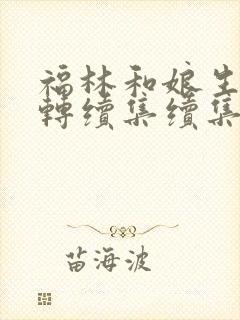 福林和娘生
轉續集續集
苗海波